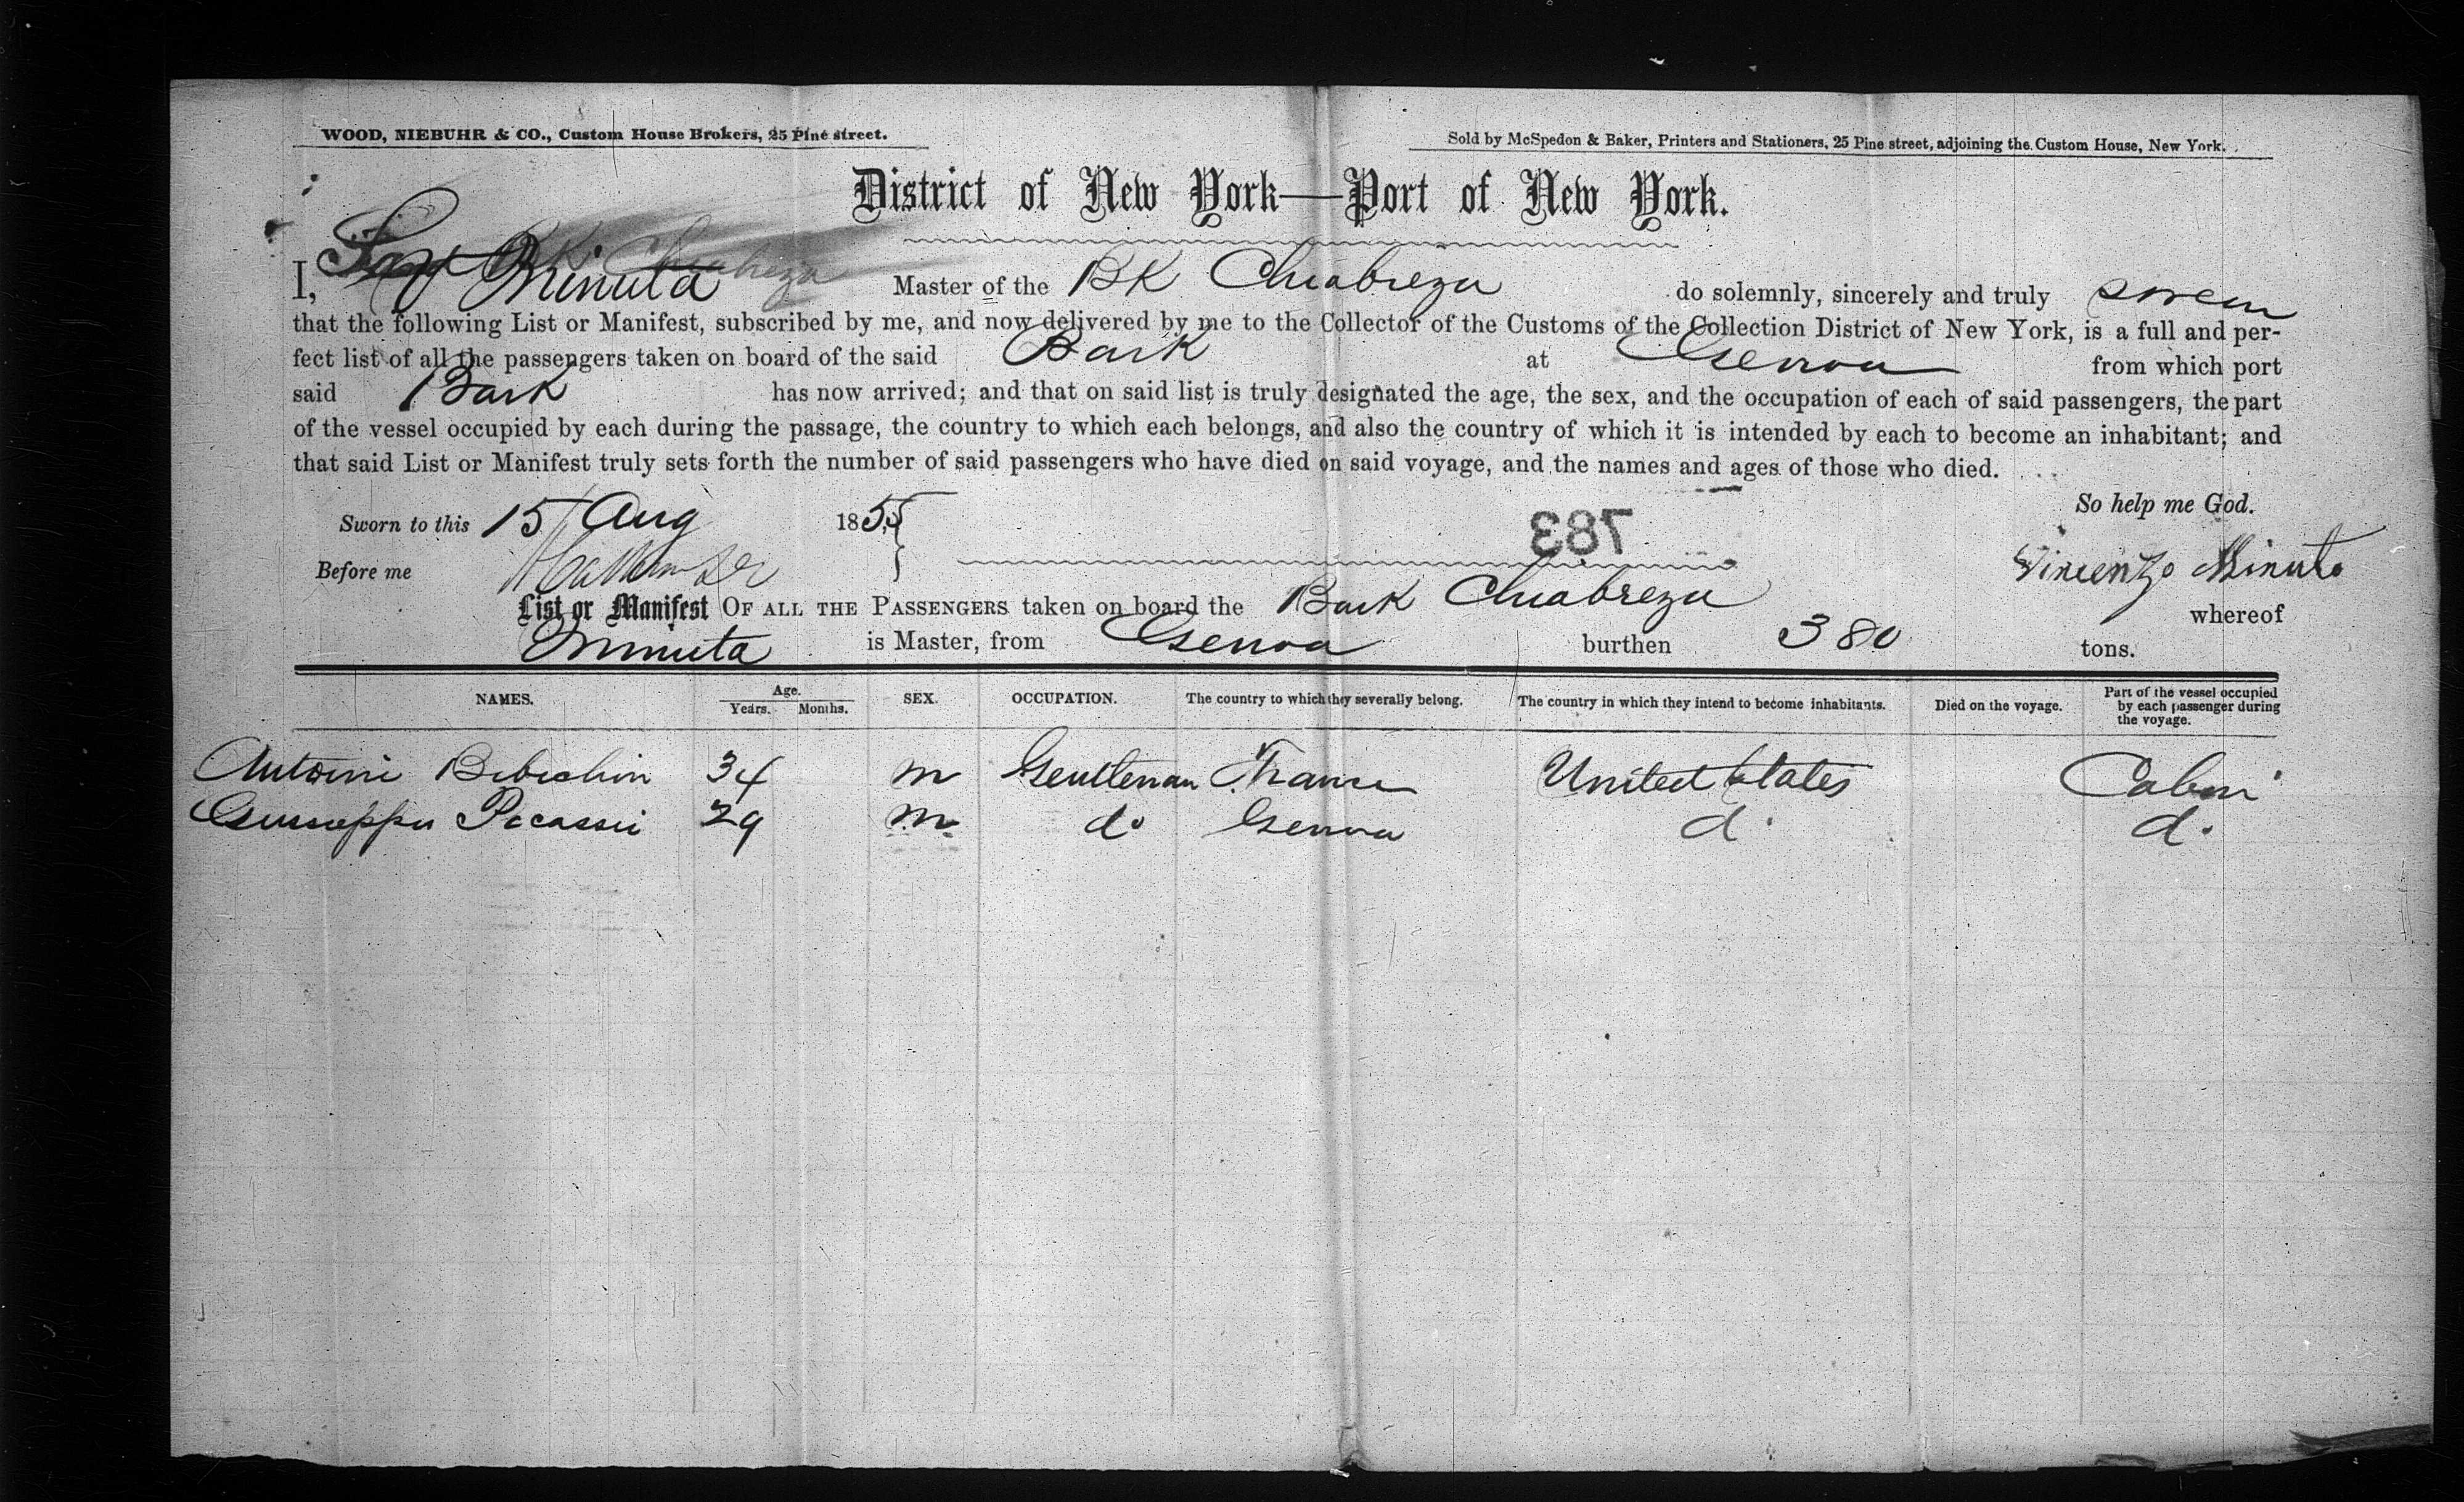 WOOD, NIEBUHR & CO., Custom House Brokers, 25 Pine street.
Sold by McSpedon & Baker, Printers and Stationers, 25 Pine street, adjoining the Custom House, New York.
District of New York—Port of New York.
I, V Minuta Master of the BK Chiabreza do solemnly, sincerely and truly swear
that the following List or Manifest, subscribed by me, and now delivered by me to the Collector of the Customs of the Collection District of New York, is a full and per-
fect list of all the passengers taken on board of the said Bark at Genoa from which port
said Bark has now arrived; and that on said list is truly designated the age, the sex, and the occupation of each of said passengers, the part
of the vessel occupied by each during the passage, the country to which each belongs, and also the country of which it is intended by each to become an inhabitant; and
that said List or Manifest truly sets forth the number of said passengers who have died on said voyage, and the names and ages of those who died.
So help me God.
Sworn to this 15 Aug 1855
783
Before me
Vincenzo Minuto
List or Manifest OF ALL THE PASSENGERS taken on board the Bark Chiabreza whereof
Minuta is Master, from Genoa burthen 380 tons.
NAMES. Age. Years. Months. SEX. OCCUPATION. The country to which they severally belong. The country in which they intend to become inhabitants. Died on the voyage. Part of the vessel occupied by each passenger during the voyage.
Antoine 34 m Gentleman France United States Cabin
Guiseppe Picassii 29 m do Genoa do do